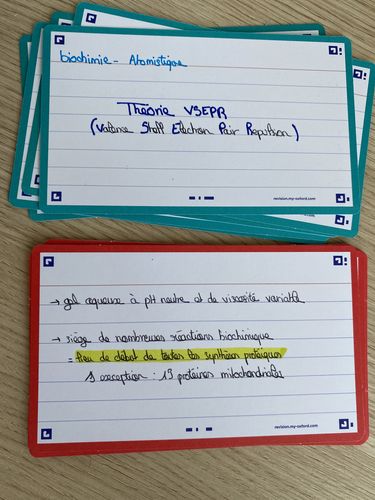 biochimie - Atomistique
Théorie VSEPR
(Valence Shell Electron Pair Repulsion)
revision.my-oxford.com
→ gel aqueux à pH neutre et de viscosité variable
→ siège de nombreuses réactions biochimique
= lieu de début de toutes les synthèses protéiques
1 exception : 13 protéines mitochondriales
revision.my-oxford.com